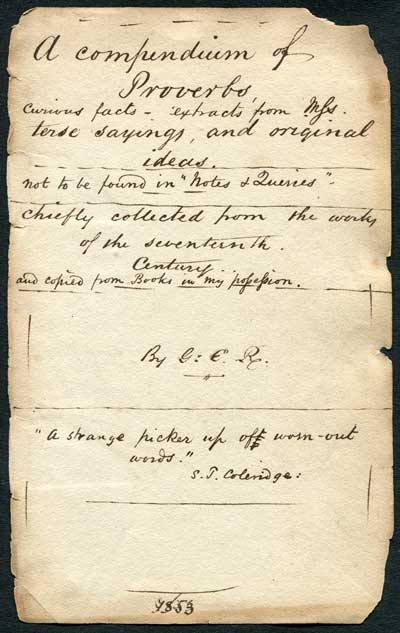 A compendium of
Proverbs,
curious facts - extracts from Mss.
terse sayings, and original
ideas.
not to be found in "Notes & Queries" -
chiefly collected from the works
of the seventeenth.
Century.
and copied from Books in my possession.
By G: E. R.
"A strange picker up of worn-out
words."
S. T. Coleridge:
1853